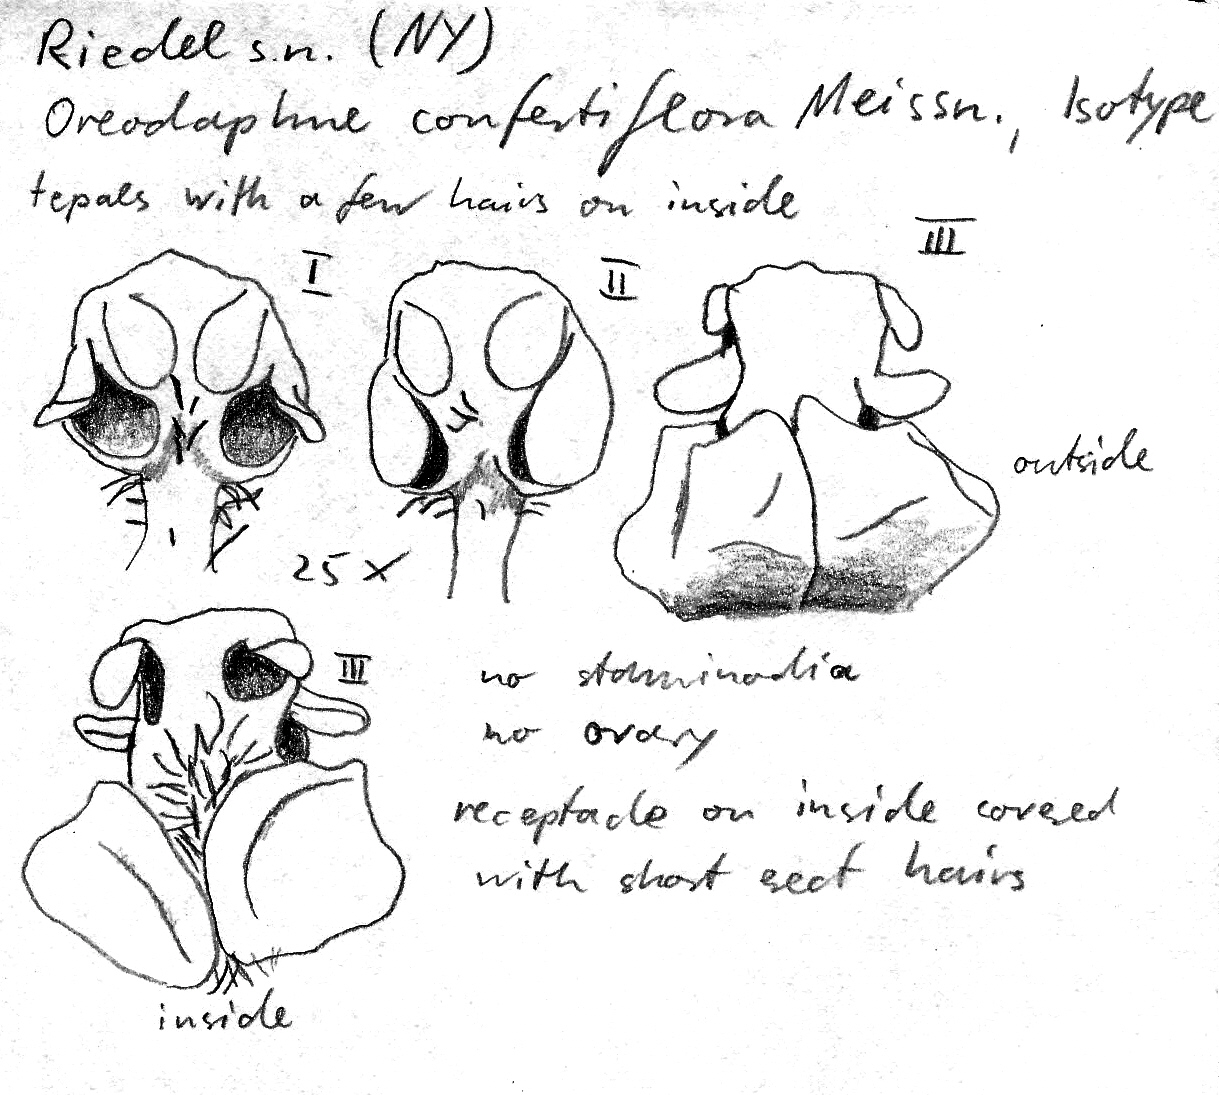 Riedel s.n. (NY)
Oreodaphne confertiflora Meissn., Isotype
tepals with a few hairs on inside
I
II
III
outside
25 x
III
no staminodia
no ovary
receptacle on inside covered
with short erect hairs
inside